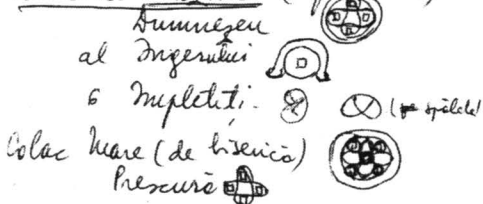 Dumnezeu
al Îngerului
6 Împletiți.
Colac Mare (de biserică)
Prescură